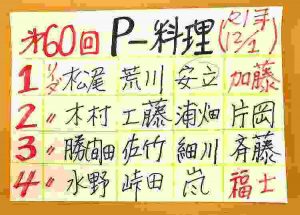 第60回 P-料理 (21年 12/2)
1 リーダー 松尾 荒川 安立 加藤
2 〃 木村 工藤 浦畑 片岡
3 〃 勝間田 佐竹 細川 斉藤
4 〃 水野 峠田 嵐 福士